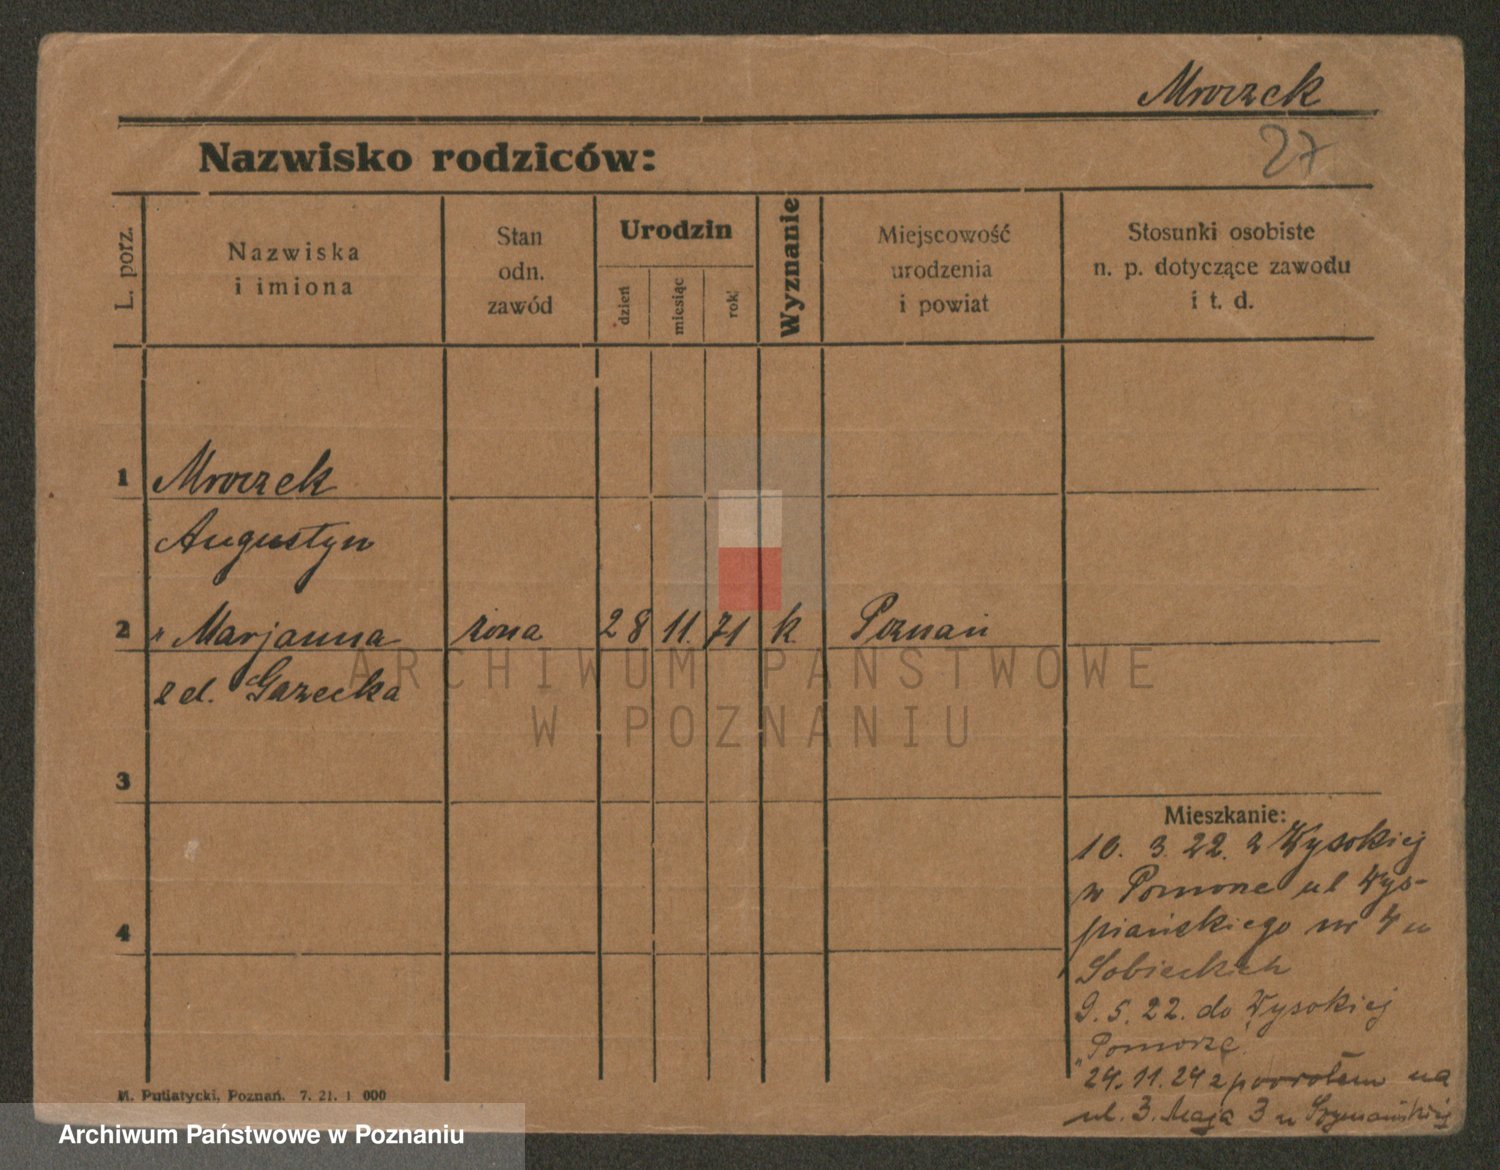 Mroczek
27
Nazwisko rodziców:
L. porz.
Nazwiska
i imiona
Stan
odn.
zawód
Urodzin
dzień
miesiąc
rok
Wyznanie
Miejscowość
urodzenia
i powiat
Stosunki osobiste
n. p. dotyczące zawodu
i t. d.
1 Mroczek
Augustyn
2 Marjanna żona 28 11. 71 k. Poznań
zd. Gazecka
ARCHIWUM PAŃSTWOWE
W POZNANIU
3
Mieszkanie:
10. 3. 22. z Wysokiej
w Pomorze ul Wys-
piańskiego nr 4 u
4
Sobieckich
9. 5. 22. do Wysokiej
"Pomorze
24. 11. 24 z powrotem na
ul. 3. Maja 3 u Szymańskiej
M. Putiatycki, Poznań. 7. 21. 1 000
Archiwum Państwowe w Poznaniu